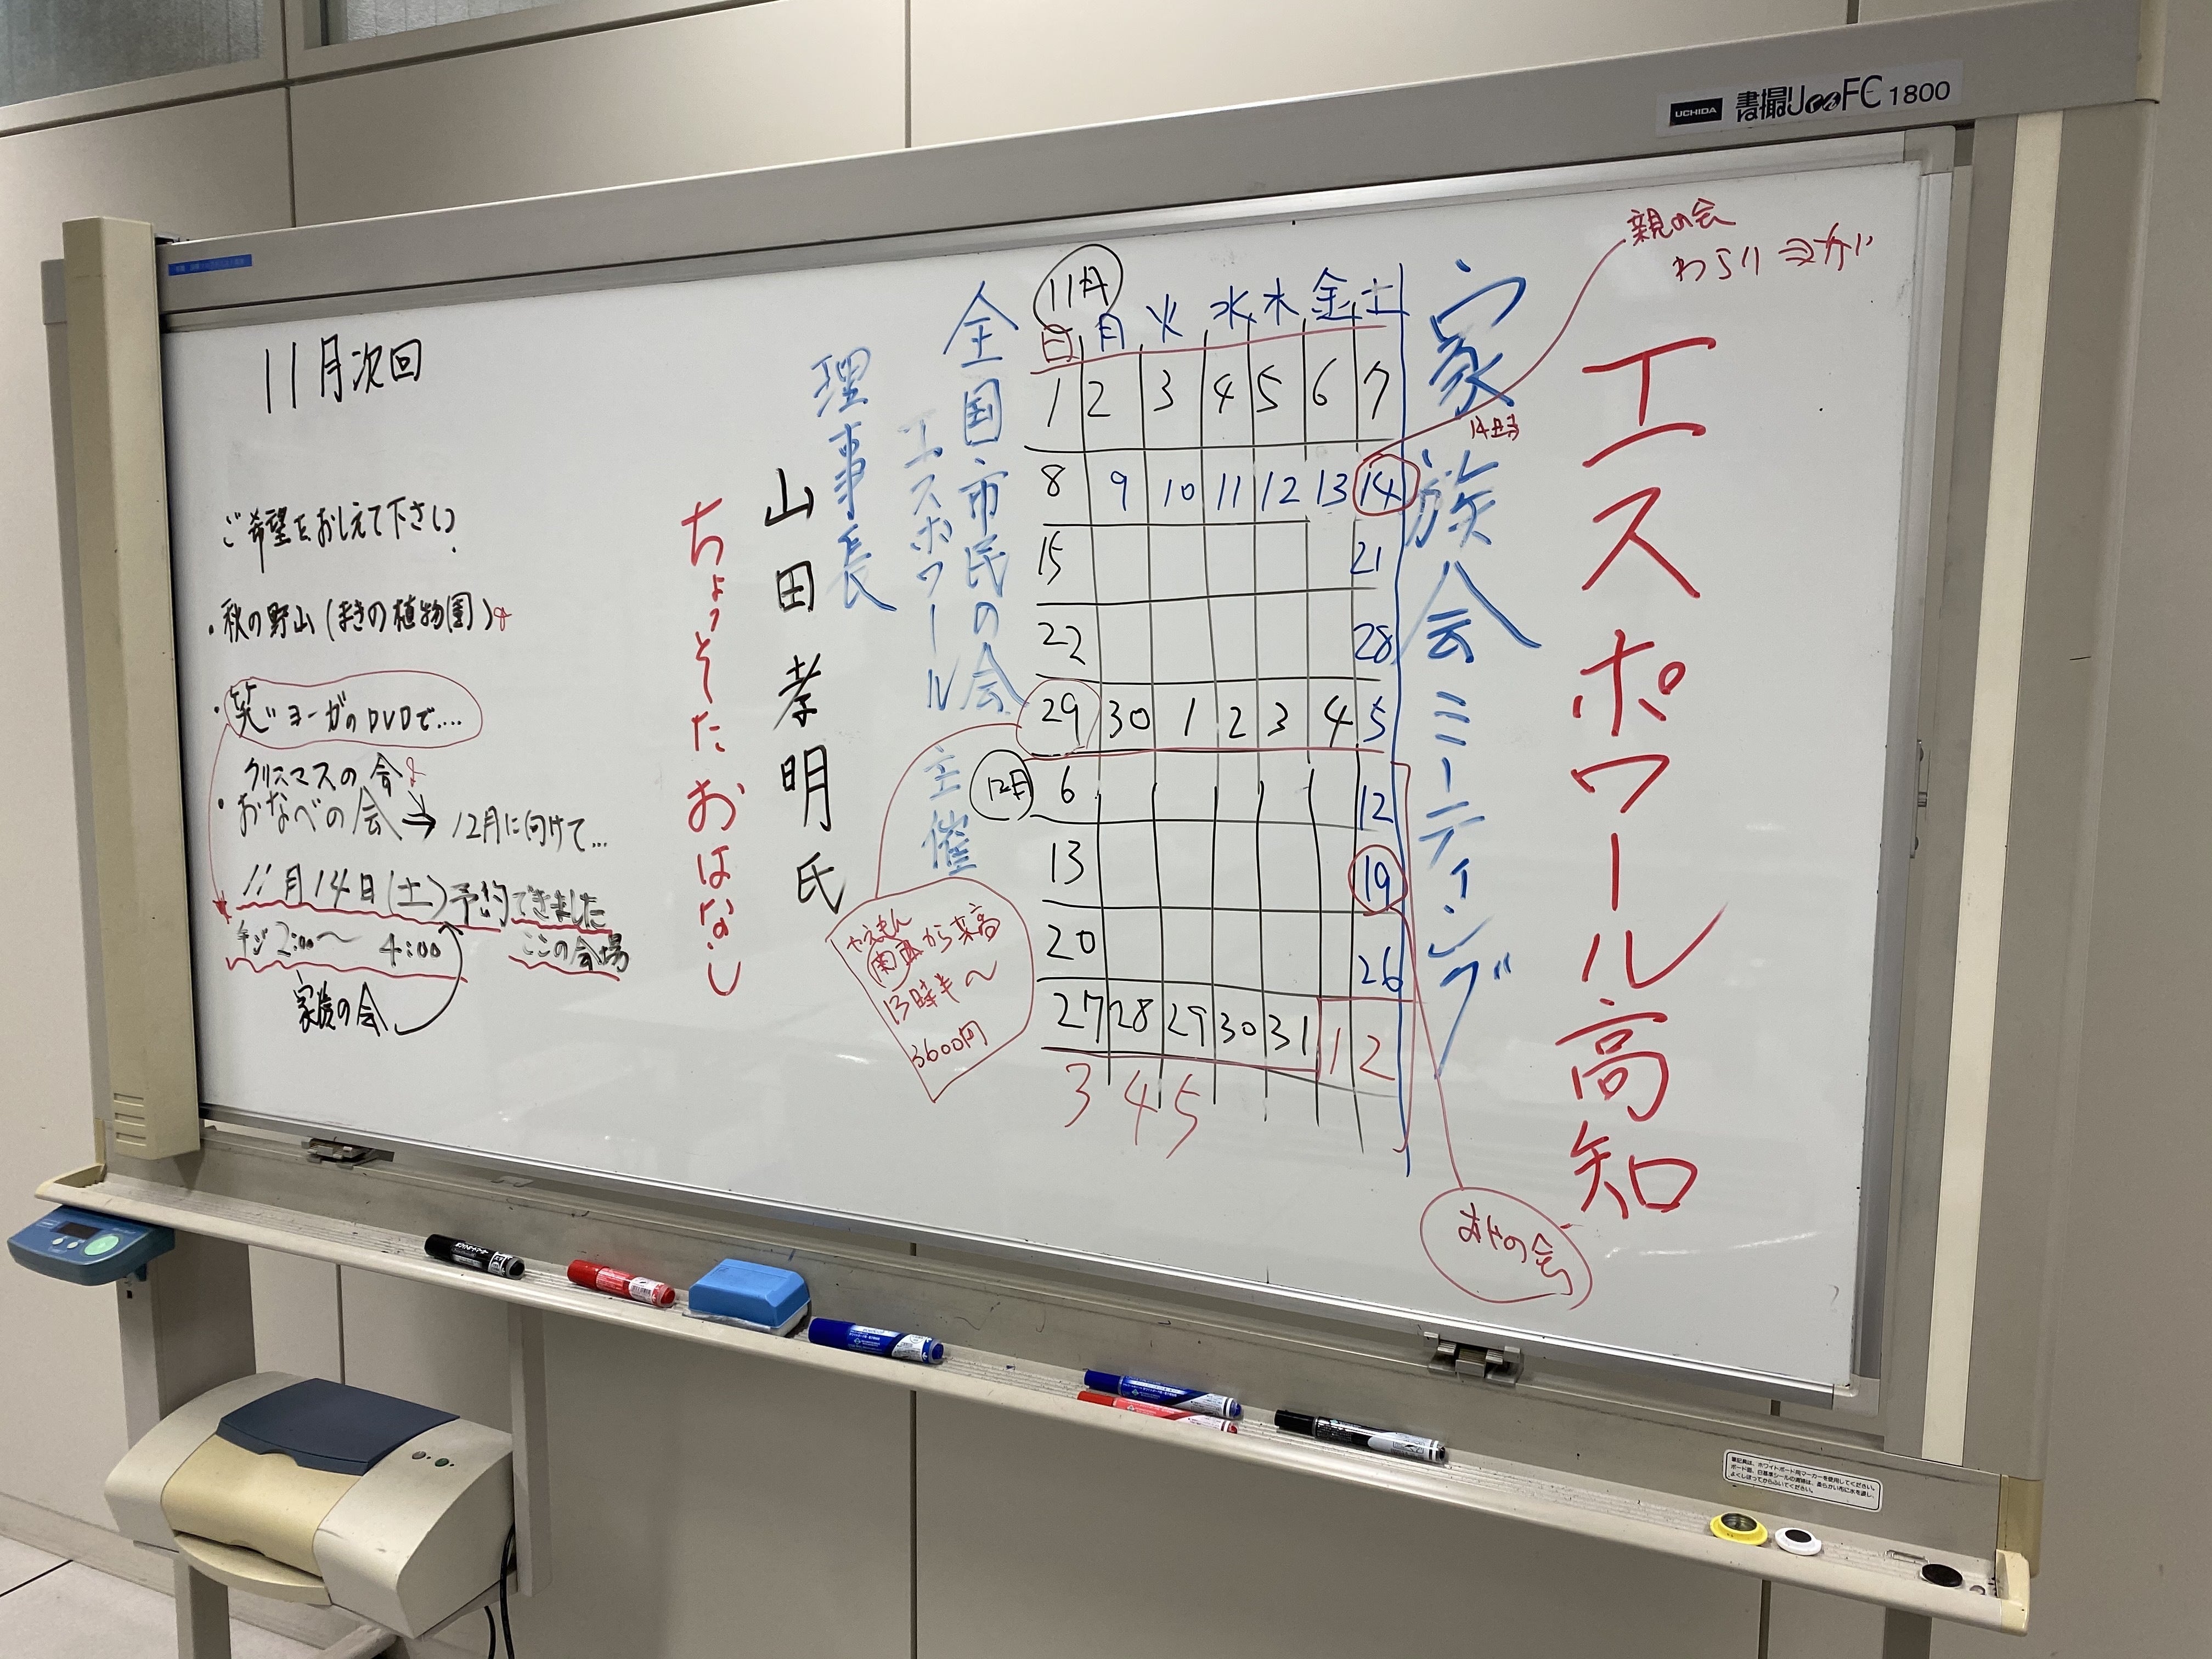 UCHIDA
FC 1800
エスポワール高知
家族会ミーティング
親の会
わらいヨガ
11月
日 月 火 水 木 金 土
1 2 3 4 5 6 7
8 9 10 11 12 13 14
15 21
22 28
29 30 1 2 3 4 5
12月
6 12
13 19
20 26
27 28 29 30 31 1 2
3 4 5
おやの会
から来高
13時半〜
3600円
全国市民の会
エスポワール
主催
理事長
山田孝明氏
ちょっとした おはなし
11月次回
ご希望をおしえて下さい.
・秋の野山(まきの植物園)
・笑いヨーガのDVDで....
クリスマスの会
・おなべの会→12月に向けて...
11月14日(土)予約できました
2:00〜 4:00
ここの会場
家族の会